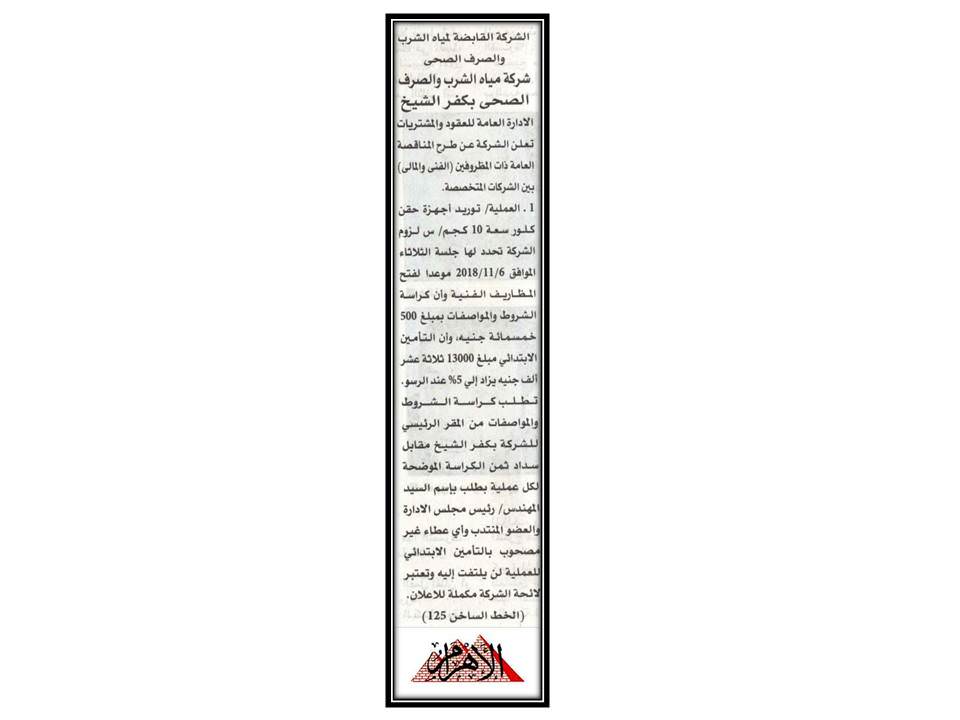 الشركة القابضة لمياه الشرب
والصرف الصحى
شركة مياه الشرب والصرف
الصحى بكفر الشيخ
الادارة العامة للعقود والمشتريات
تعلن الشركة عن طرح المناقصة
العامة ذات المظروفين (الفنى والمالى)
بين الشركات المتخصصة.
1 . العملية/ توريد أجهزة حقن
كلور سعة 10 كجم/ س لزوم
الشركة تحدد لها جلسة الثلاثاء
الموافق 2018/11/6 موعدا لفتح
المظاريف الفنية وأن كراسة
الشروط والمواصفات بمبلغ 500
خمسمائة جنيه، وأن التأمين
الابتدائي مبلغ 13000 ثلاثة عشر
ألف جنيه يزاد إلي 5% عند الرسو.
تطلب كراسة الشروط
والمواصفات من المقر الرئيسي
للشركة بكفر الشيخ مقابل
سداد ثمن الكراسة الموضحة
لكل عملية بطلب بإسم السيد
المهندس/ رئيس مجلس الادارة
والعضو المنتدب وأي عطاء غير
مصحوب بالتأمين الابتدائي
للعملية لن يلتفت إليه وتعتبر
لائحة الشركة مكملة للاعلان.
(الخط الساخن 125)
الأهرام